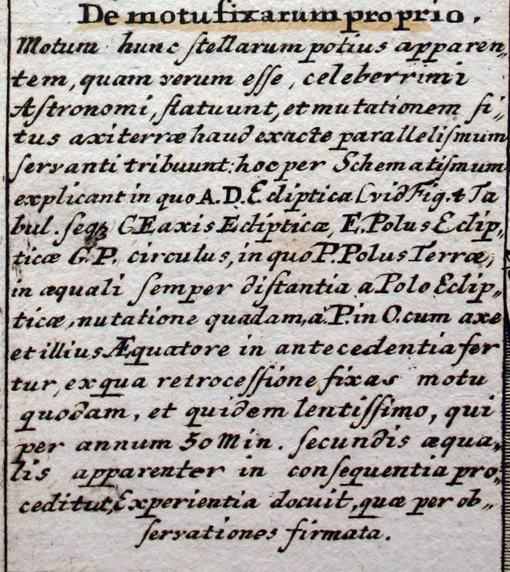 De motu fixarum proprio.
Motum hunc ſtellarum potius apparen⸗
tem, quam verum eſſe, celeberrimi
Aſtronomi, ſtatuunt, et mutationem ſi⸗
tus axi terræ haud exacte paralleliſmum
ſervanti tribuunt: hoc per Schematiſmum
explicant in quo A.D. Ecliptica (vid Fig. 4 Ta
bul. ſeqz CE axis Eclipticæ, E. Polus Eclip⸗
ticæ G.P. circulus, in quo P. Polus Terræ,
in æquali ſemper diſtantia a Polo Eclip⸗
ticæ, nutatione quadam, à P. in O. cum axe
et illius Æquatore in antecedentia fer
tur, ex qua retroceſſione fixas motu
quodam, et quidem lentiſſimo, qui
per annum 50 Min. ſecundis æqua⸗
lis apparenter in conſequentia pro⸗
ceditur, Experientia docuit, quæ per ob⸗
ſervationes firmata.